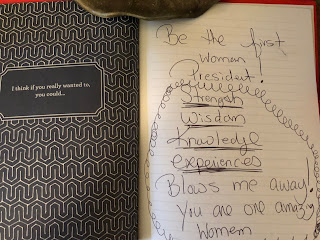 I think if you really wanted to,
you could...
Be the first
Woman
President!
Strength
Wisdom
Knowledge
experiences
Blows me away!
You are one amazing
Womem